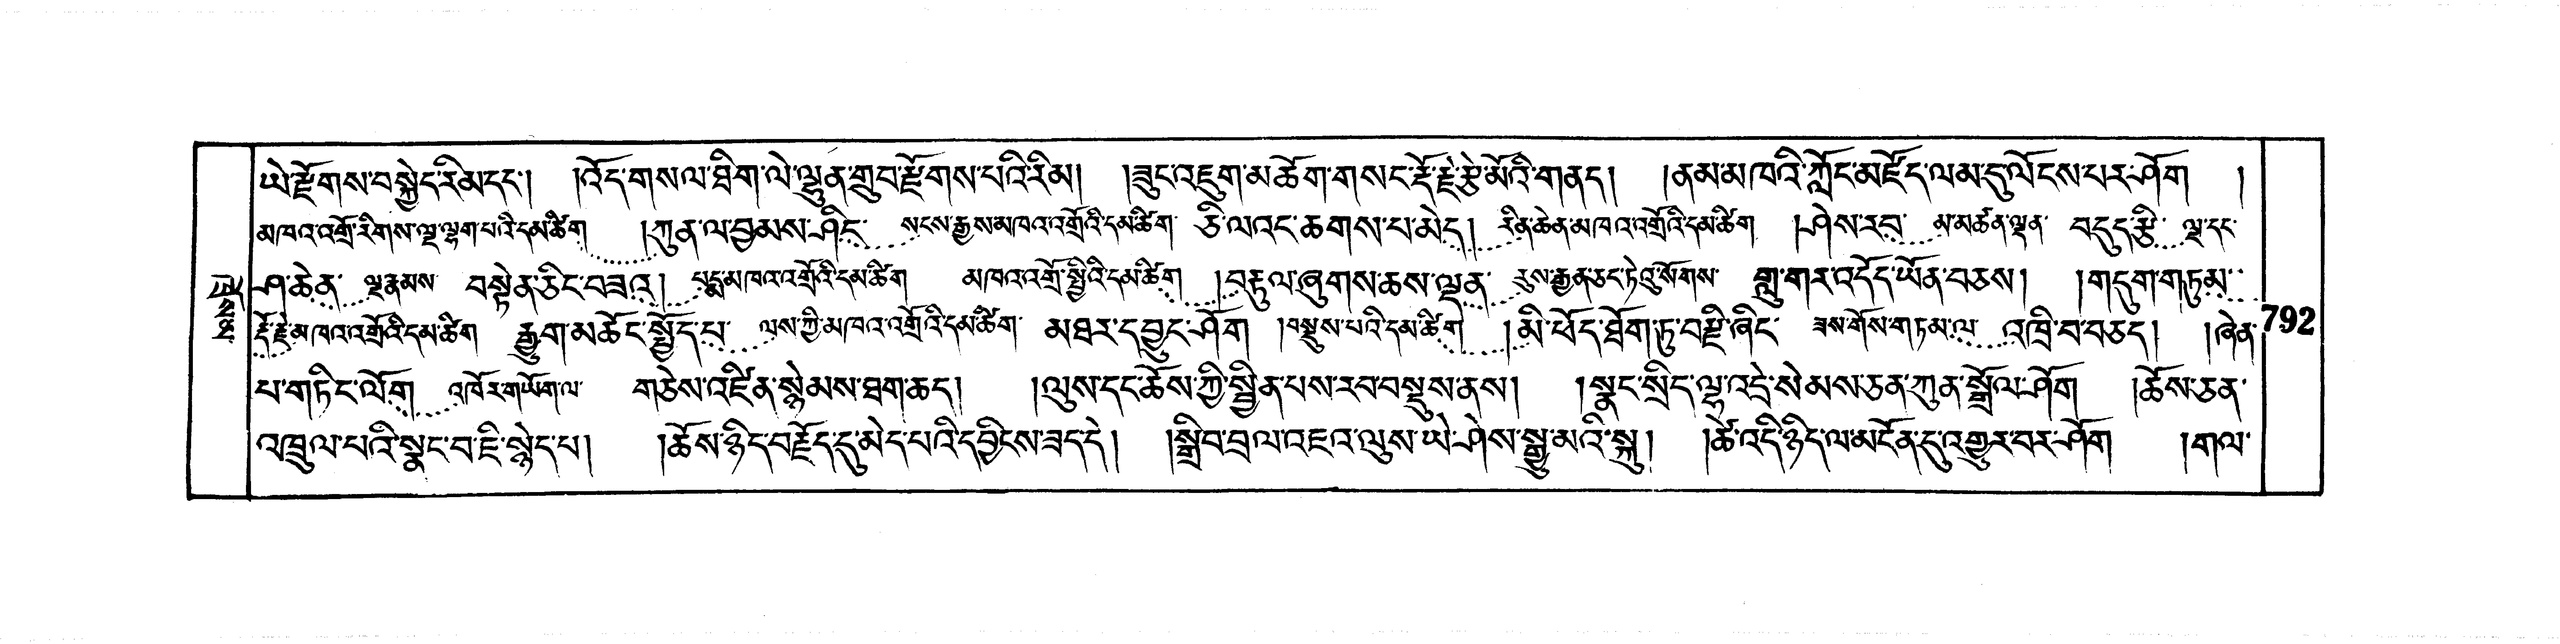 ཡེ་རྫོགས་བསྐྱེད་རིམ་དང་། །འོད་གསལ་ཐིག་ལེ་ལྷུན་གྲུབ་རྫོགས་པའི་རིམ། །ཟུང་འཇུག་མཆོག་གསང་རྡོ་རྗེ་རྩེ་མོའི་གནད། །ནམ་མཁའི་ཀློང་མཛོད་ལམ་དུ་ལོངས་པར་ཤོག །
མཁའ་འགྲོ་རིགས་ལྔ་ལྷག་པའི་དམ་ཚིག །ཀུན་ལ་བྱམས་ཤིང་ སངས་རྒྱས་མཁའ་འགྲོའི་དམ་ཚིག་ ཅི་ལའང་ཆགས་པ་མེད། རིན་ཆེན་མཁའ་འགྲོའི་དམ་ཚིག །ཤེས་རབ་ མ་མཚན་ལྡན་ བདུད་རྩི་ ལྔ་དང་
ཤ་ཆེན་ ལྔ་རྣམས་ བསྟེན་ཅིང་བཟའ། པདྨ་མཁའ་འགྲོའི་དམ་ཚིག མཁའ་འགྲོ་སྤྱིའི་དམ་ཚིག །བརྟུལ་ཞུགས་ཆས་ལྡན་ རུས་རྒྱན་ཅང་ཏེའུ་སོགས་ གླུ་གར་འདོད་ཡོན་བཅས། །གདུག་གཏུམ་
རྡོ་རྗེ་མཁའ་འགྲོའི་དམ་ཚིག རྒྱུག་མཆོང་སྤྱོད་པ་ ལས་ཀྱི་མཁའ་འགྲོའི་དམ་ཚིག་ མཐར་དབྱུང་ཤོག །བསྡུས་པའི་དམ་ཚིག །མི་ཕོད་ཐོག་ཏུ་བརྫི་ཞིང་ ཟས་གོས་གཏམ་ལ་ འཁྲི་བ་བཅད། །ཞེན་
པ་གཏིང་ལོག འཁོར་གཡོག་ལ་ གཅེས་འཛིན་སྙེམས་ཐག་ཆད། །ལུས་དང་ཆོས་ཀྱི་སྦྱིན་པས་རབ་བསྡུས་ནས། །སྣང་སྲིད་ལྷ་འདྲེ་སེམས་ཅན་ཀུན་སྒྲོལ་ཤོག །ཆོས་ཅན་
འཁྲུལ་པའི་སྣང་བ་ཇི་སྙེད་པ། །ཆོས་ཉིད་བརྗོད་དུ་མེད་པའི་དབྱིངས་ཟད་དེ། །སྒྲིབ་བྲལ་འཇའ་ལུས་ཡེ་ཤེས་སྒྱུ་མའི་སྐུ། །ཚེ་འདི་ཉིད་ལ་མངོན་དུ་འགྱུར་བར་ཤོག །གལ་
792